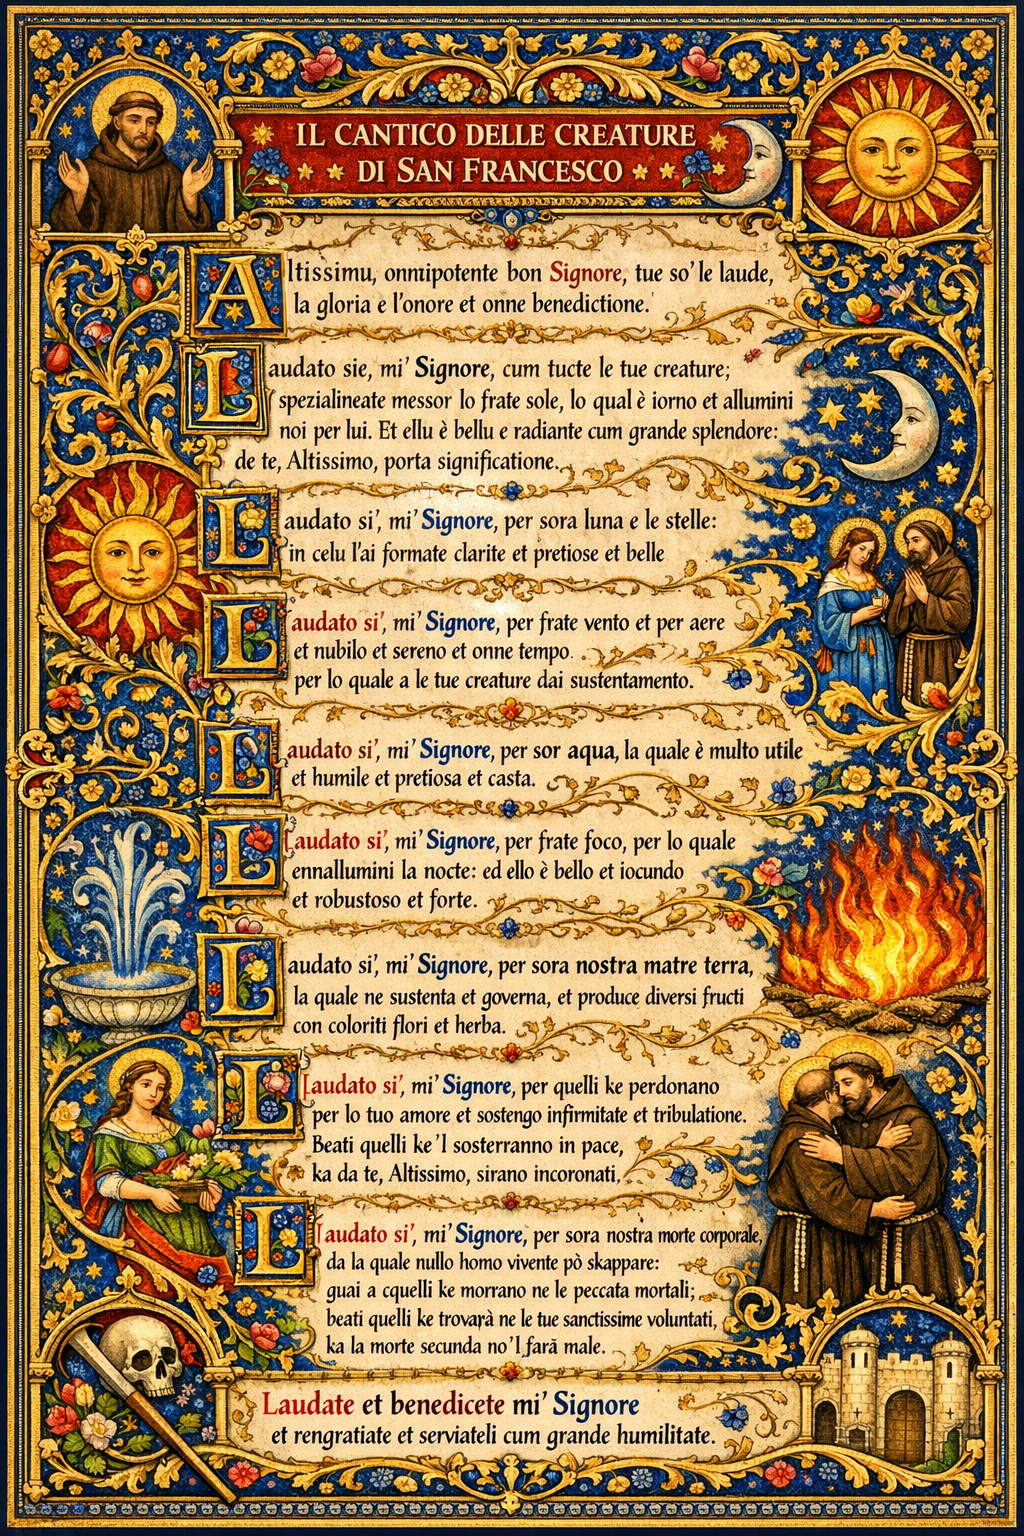 IL CANTICO DELLE CREATURE
DI SAN FRANCESCO
Altissimu, onmipotente bon Signore, tue so' le laude,
la gloria e l'onore et onne benedictione.
Laudato sie, mi' Signore, cum tucte le tue creature;
spezialineate messor lo frate sole, lo qual è iorno et allumini
noi per lui. Et ellu è bellu e radiante cum grande splendore:
de te, Altissimo, porta significatione.
Laudato si', mi' Signore, per sora luna e le stelle:
in celu l'ai formate clarite et pretiose et belle
Laudato si', mi' Signore, per frate vento et per aere
et nubilo et sereno et onne tempo.
per lo quale a le tue creature dai sustentamento.
Laudato si', mi' Signore, per sor aqua, la quale è multo utile
et humile et pretiosa et casta.
Laudato si', mi' Signore, per frate foco, per lo quale
ennallumini la nocte: ed ello è bello et iocundo
et robustoso et forte.
Laudato si', mi' Signore, per sora nostra matre terra,
la quale ne sustenta et governa, et produce diversi fructi
con coloriti flori et herba.
Laudato si', mi' Signore, per quelli ke perdonano
per lo tuo amore et sostengo infirmitate et tribulatione.
Beati quelli ke 'l sosterranno in pace,
ka da te, Altissimo, sirano incoronati,
Laudato si', mi' Signore, per sora nostra morte corporale,
da la quale nullo homo vivente pò skappare:
guai a cquelli ke morrano ne le peccata mortali;
beati quelli ke trovarà ne le tue sanctissime voluntati,
ka la morte secunda no 'l farà male.
Laudate et benedicete mi' Signore
et rengratiate et serviateli cum grande humilitate.